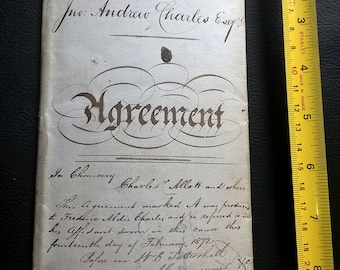 Jno: Andrew Charles Esqre
Agreement
In Chancery
Charles v. Allott and others
This Agreement marked A was produced
to Frederic Abdy Charles and is referred to in
his Affidavit sworn in this cause this
fourteenth day of February 1872.
Before me W. E.
1
2
3
4
5
6
7